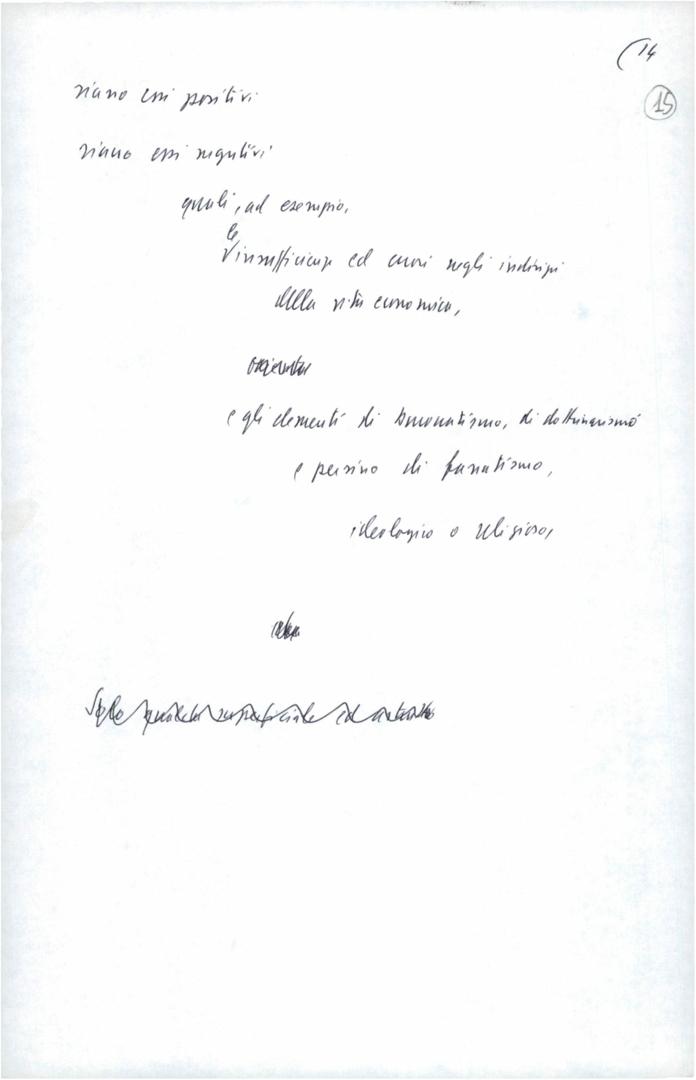 14
15
siano essi positivi
siano essi negativi
quali, ad esempio,
le
insufficienze ed errori negli indirizzi
della vita economica,
e gli elementi di burocratismo, di dottrinarismo
e persino di fanatismo,
ideologico o religioso,